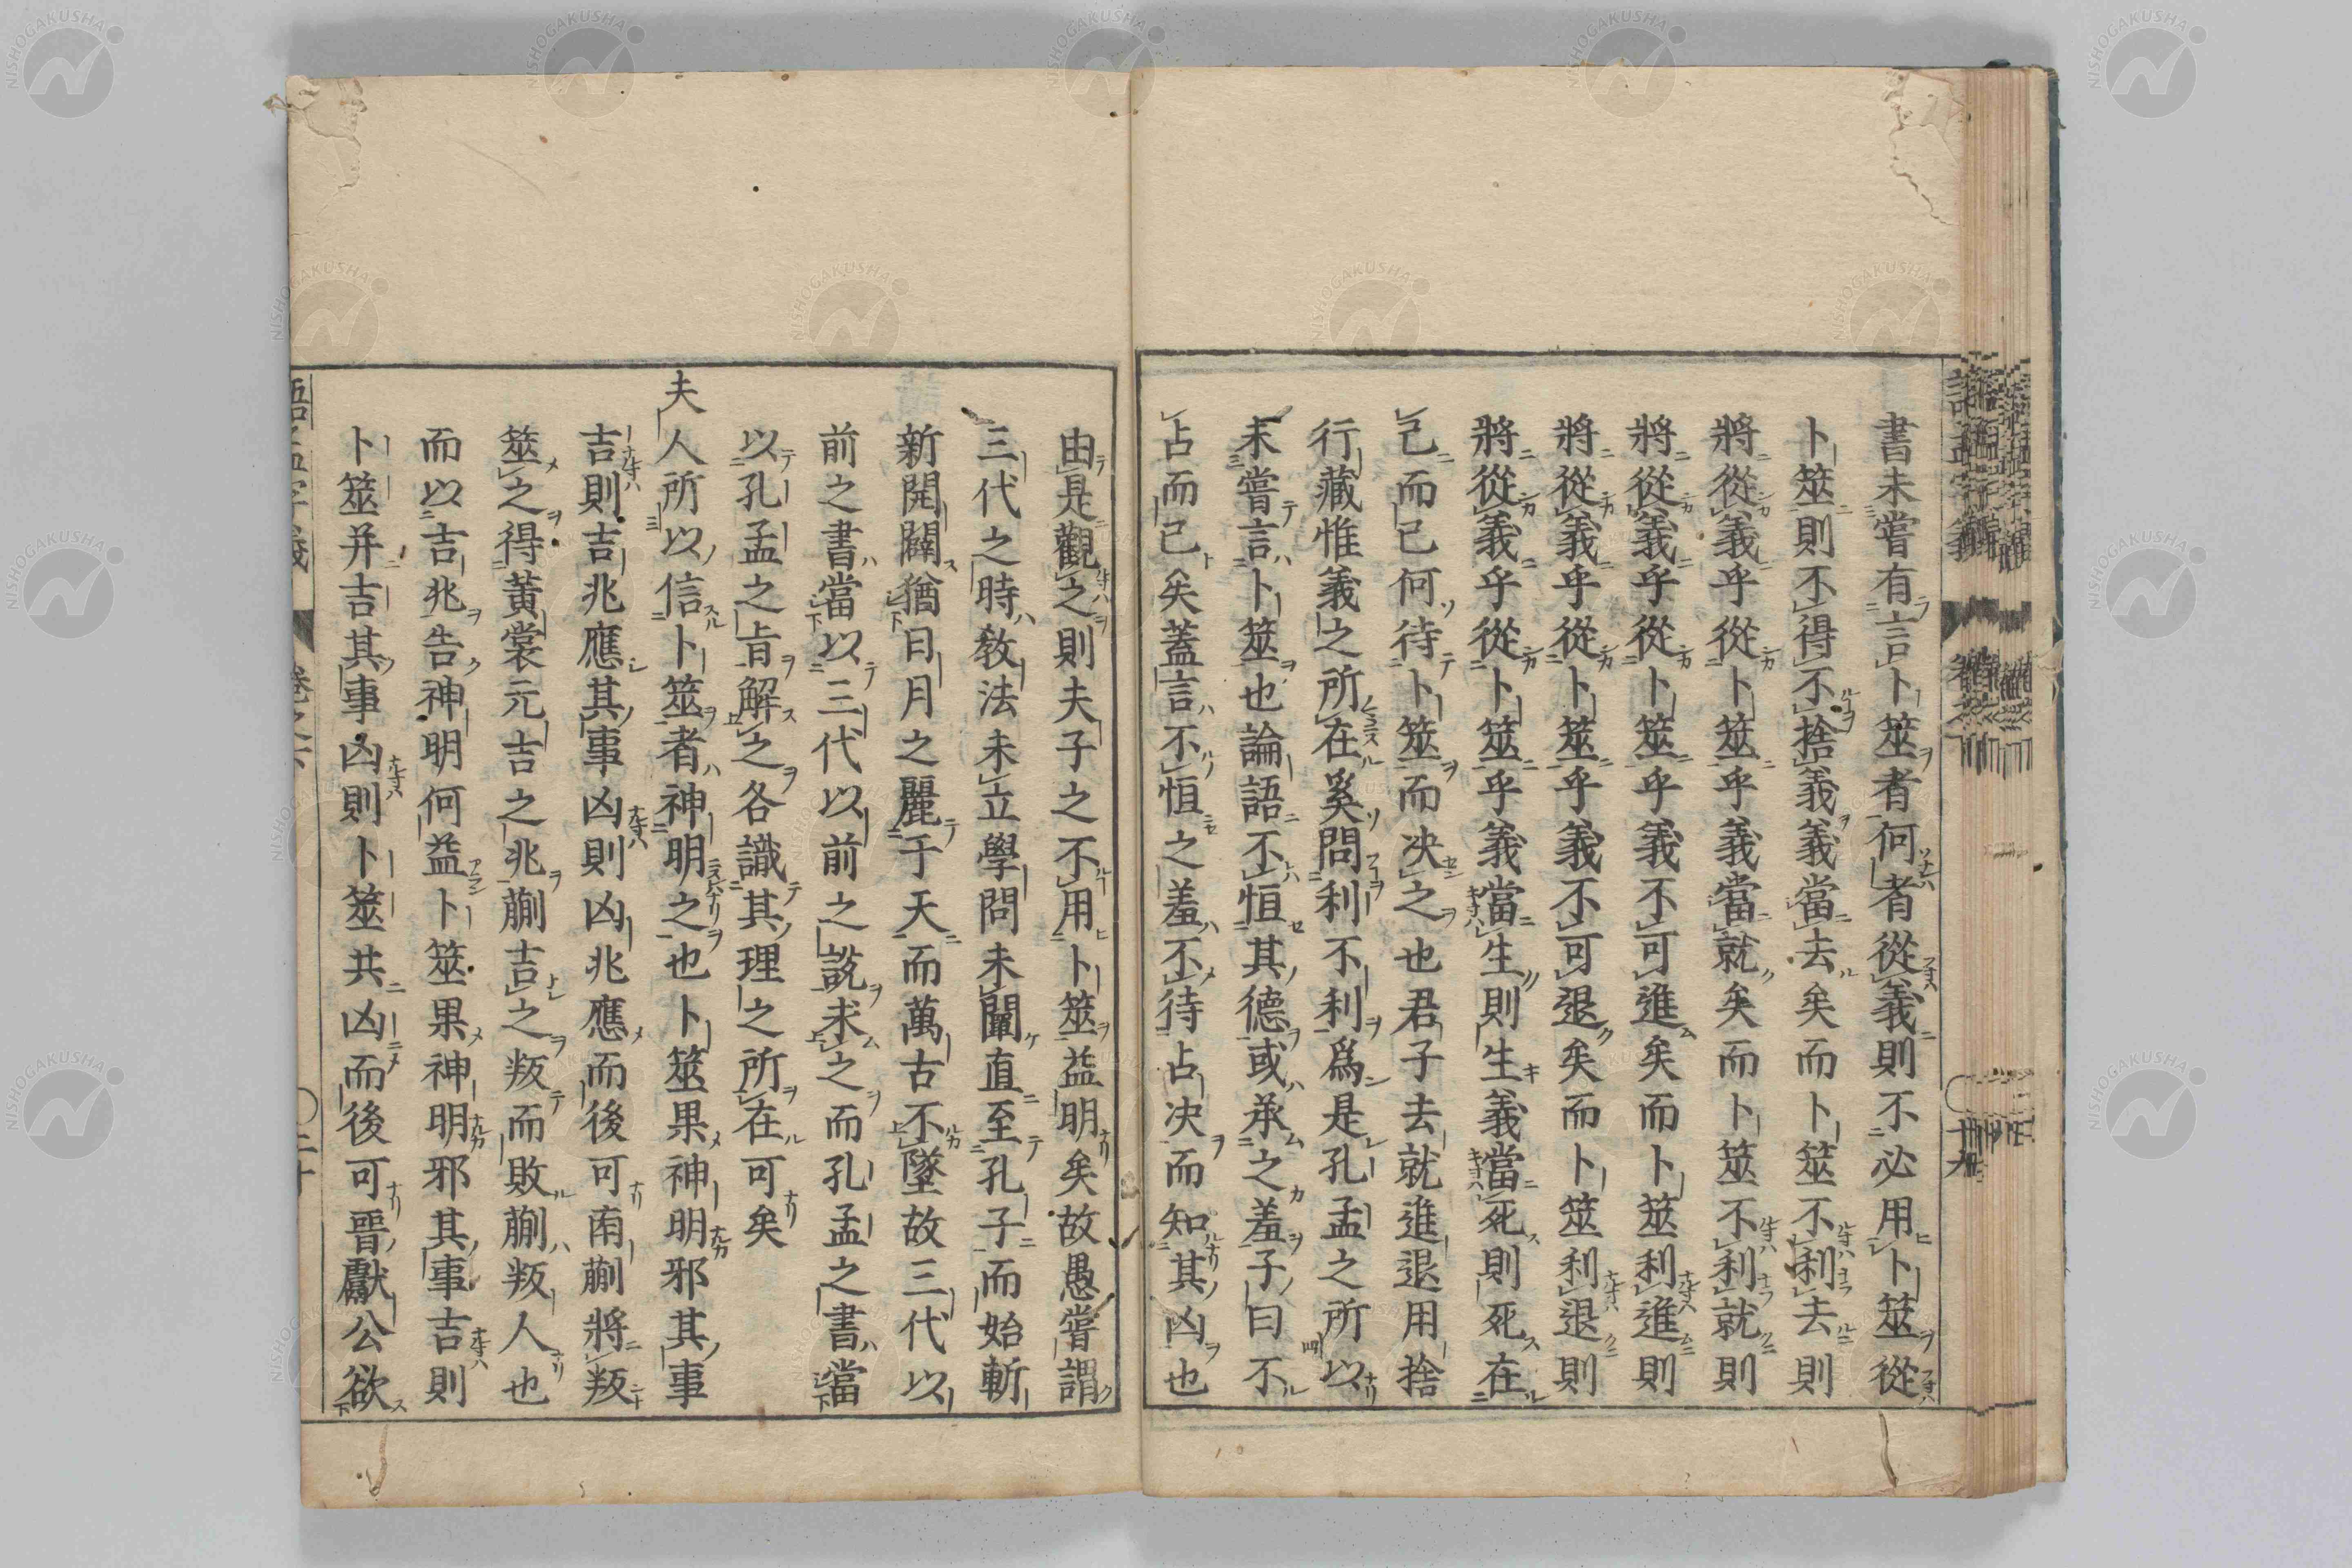 書未嘗有言卜筮者何者從義則不必用卜筮從
卜筮則不得不捨義義當去矣而卜筮不利去則
將從義乎從卜筮乎義當就矣而卜筮不利就則
將從義乎從卜筮乎義不可進矣而卜筮利進則
將從義乎從卜筮乎義不可退矣而卜筮利退則
將從義乎從卜筮乎義當生則生義當死則死在
己而已何待卜筮而决之也君子去就進退用捨
行藏惟義之所在奚問利不利爲是孔孟之所以
未嘗言卜筮也論語不恒其德或承之羞子曰不
占而已矣蓋言不恒之羞不待占决而知其凶也
由是觀之則夫子之不用卜筮益明矣故愚嘗謂
三代之時敎法未立學問未闢直至孔子而始斬
新開闢猶日月之麗于天而萬古不墜故三代以
前之書當以三代以前之說求之而孔孟之書當
以孔孟之旨解之各識其理之所在可矣
夫人所以信卜筮者神明之也卜筮果神明邪其事
吉則吉兆應其事凶則凶兆應而後可南蒯將叛
筮之得黃裳元吉之兆蒯吉之叛而敗蒯叛人也
而以吉兆告神明何益卜筮果神明邪其事吉則
卜筮并吉其事凶則卜筮共凶而後可晉獻公欲
語孟字義 卷之下 〇二十
NISHOGAKUSHA